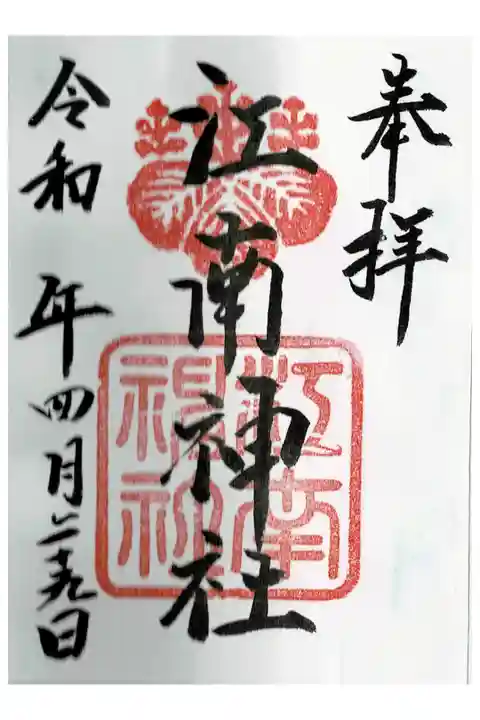 奉拝
江南神社
江南神社
令和 年四月二十九日